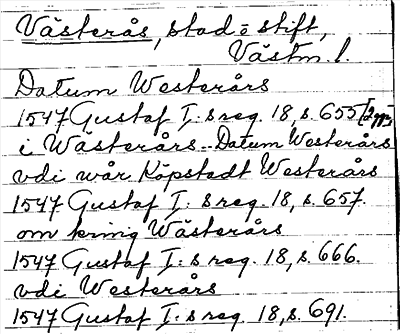 Västerås, stad o stift,
Västm. l.
Datum Westerårs
1547 Gustaf I:s reg. 18, s. 655 [2 ggr]
i Wästerårs – Datum Westerårs
vdi wår Köpstadt Westerårs
1547 Gustaf I:s reg. 18, s. 657.
om kring Wästerårs
1547 Gustaf I:s reg. 18, s. 666.
vdi Westerårs
1547 Gustaf I:s reg. 18, s. 691.